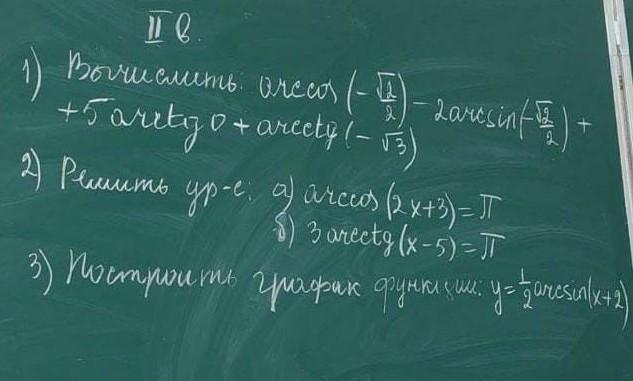 II в.
1) Вычислить: arccos(-√2/2) - 2arcsin(-√2/2) +
+ 5 arctg 0 + arcctg(-√3)
2) Решить ур-е: а) arccos(2x+3)=π
б) 3 arcctg(x-5)=π
3) Построить график функции: y=1/2 arcsin(x+2)